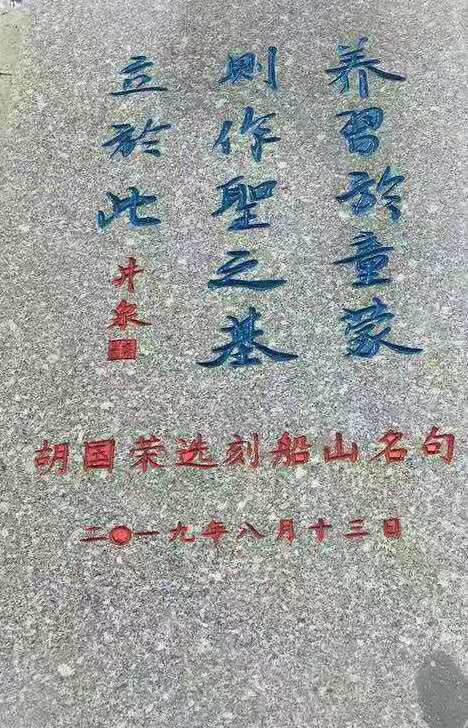 养习於童蒙
则作聖之基
立於此
井泉
胡国荣选刻船山名句
二〇一九年八月十三日